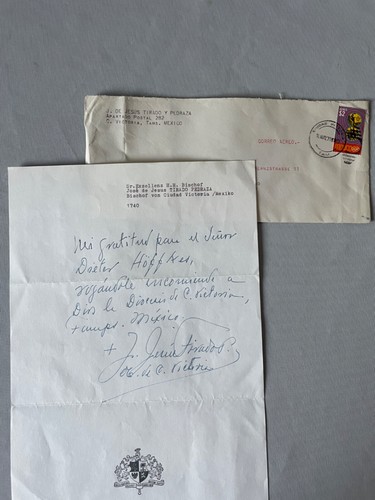 J. DE JESUS TIRADO Y PEDRAZA
APARTADO POSTAL 282
C. VICTORIA, TAMS. MEXICO
CORREO AEREO.-
$2
Sr. Exzellenz H.H. Bischof
José de Jesus TIRADO PEDRAZA
Bischof von Ciudad Victoria/Mexico
1740
Mi gratitud para el Señor
Dieter Höffker,
rogándole encomiende a
Dios la Diócesis de C. Victoria,
Tamps. México.
+ J. Jesús Tirado P.
Ob. de C. Victoria